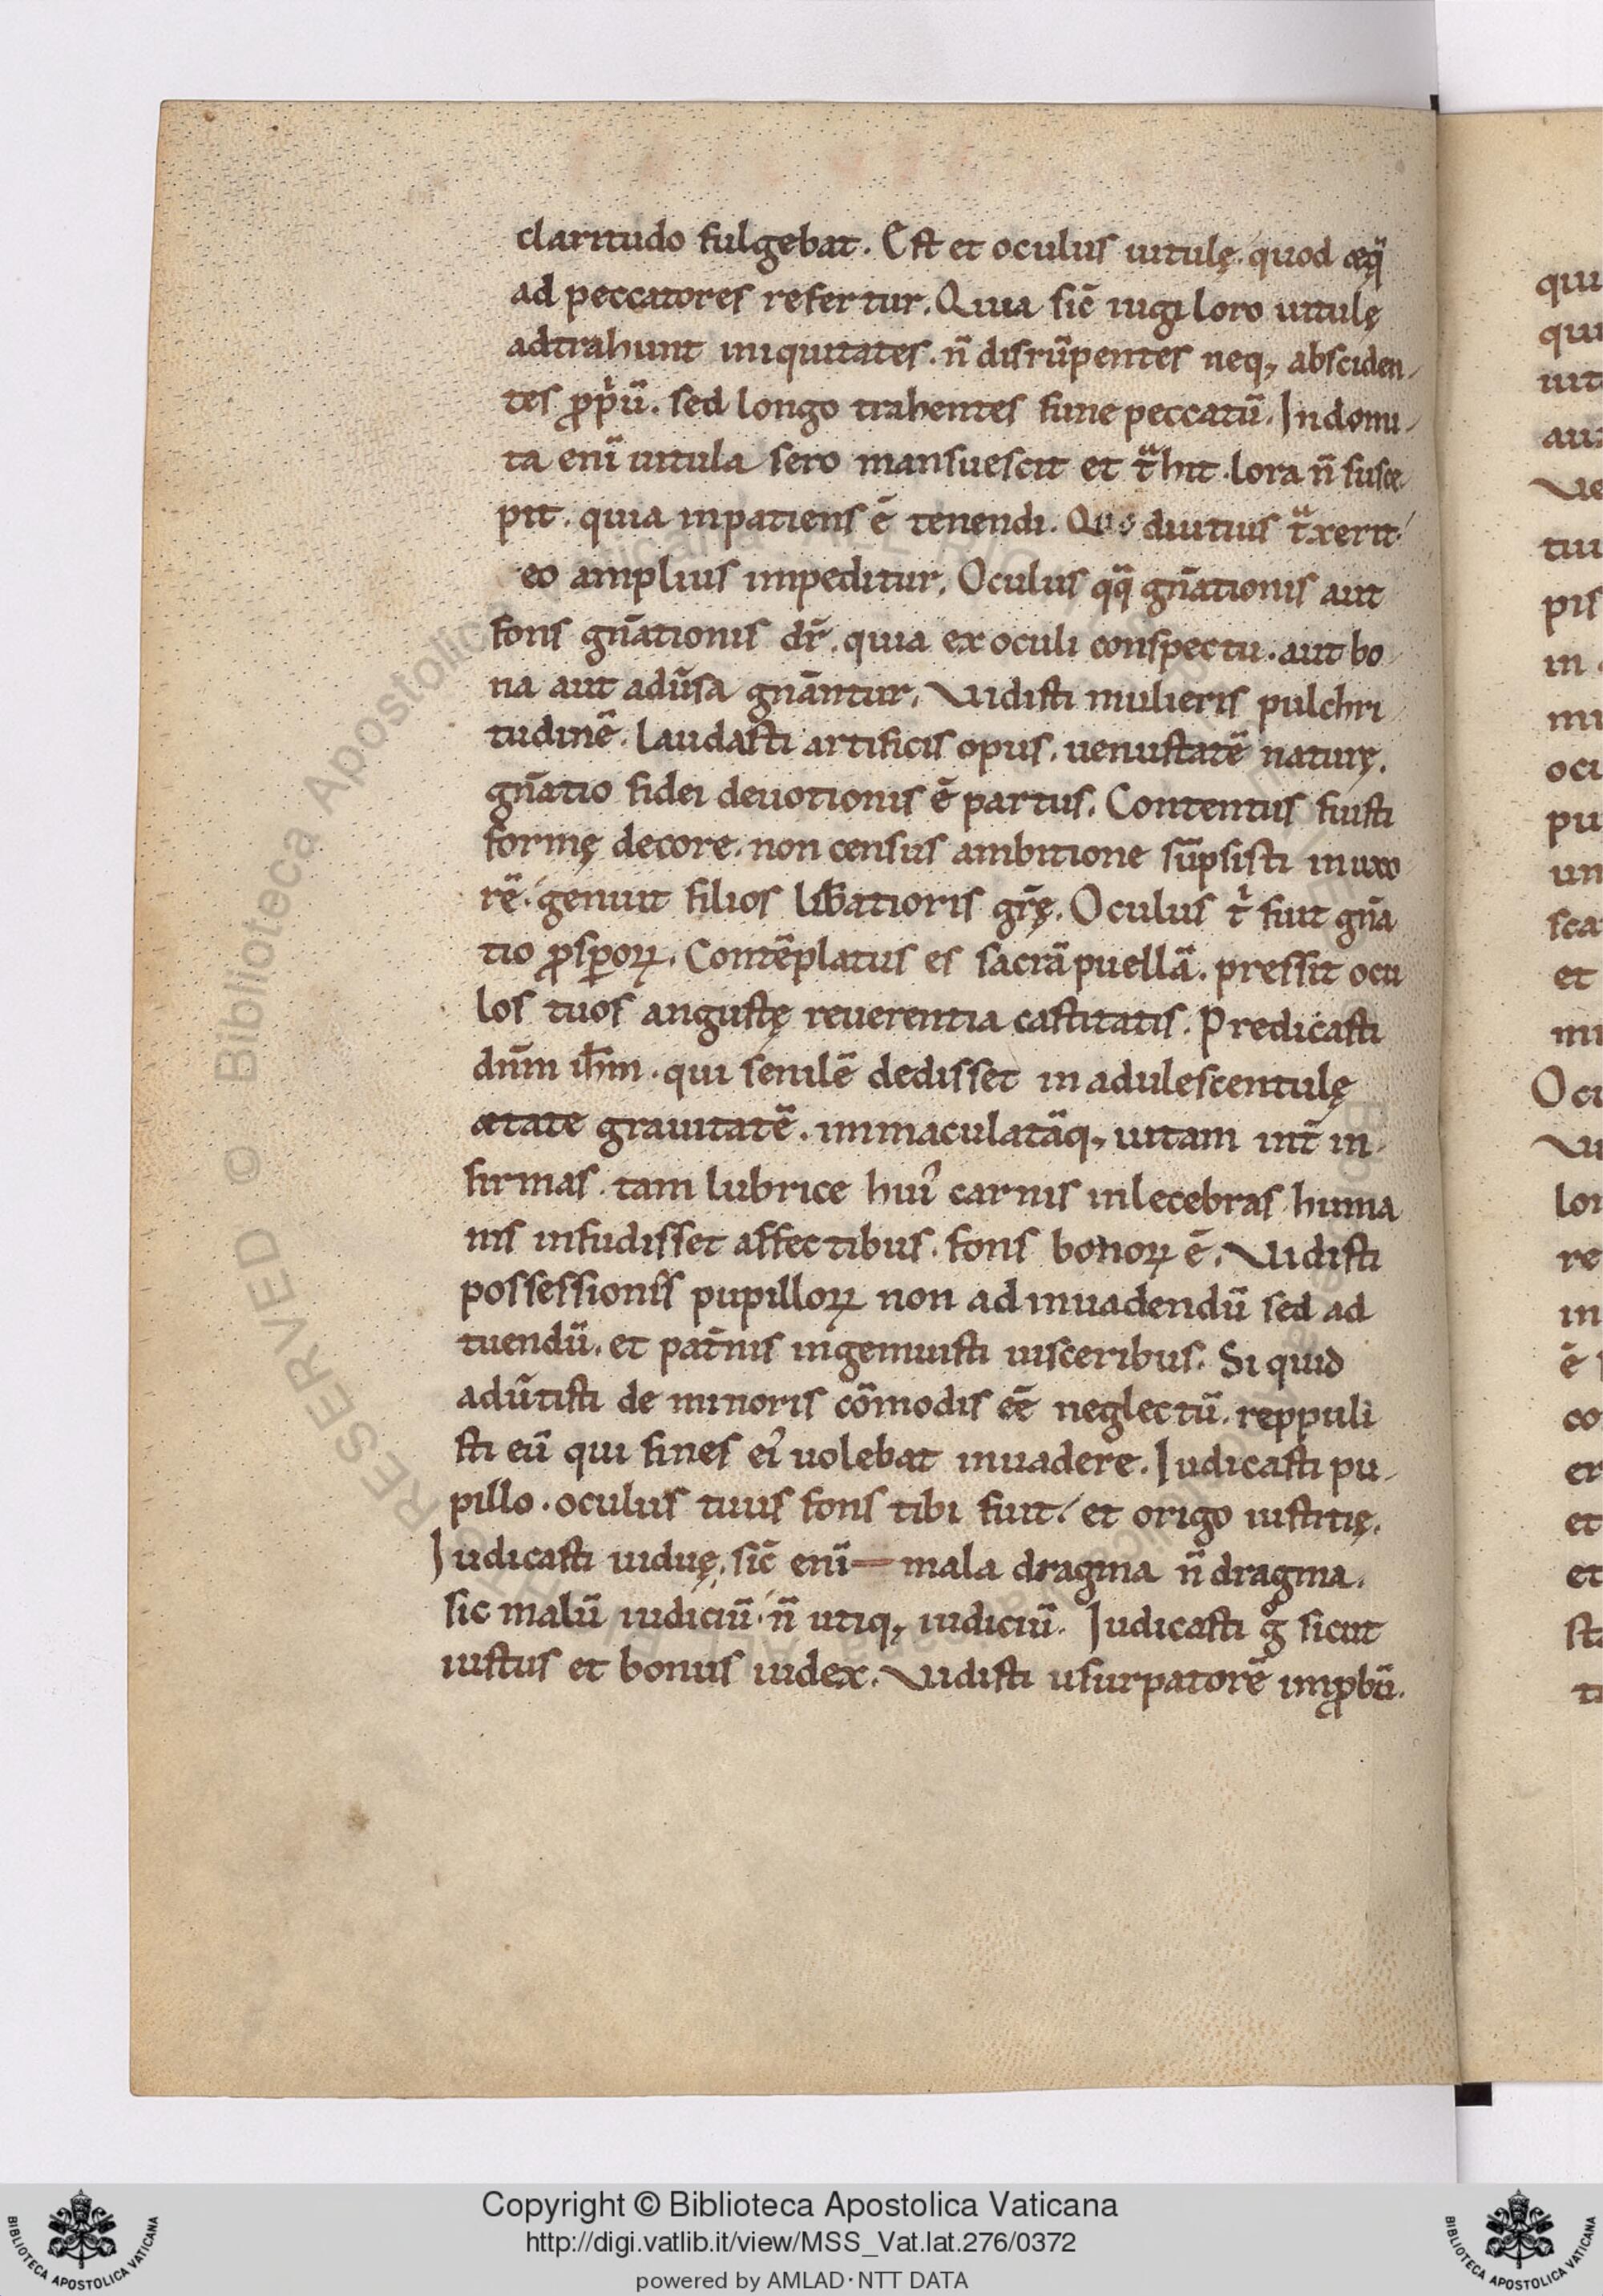 claritudo fulgebat. Est et oculus uitulę. quod æq̈
ad peccatores refertur. Quia sic̄ iugi loro uitulę
adtrahunt iniquitates. n̄ disrūpentes neq; absciden-
tes ꝓpͥū. sed longo trahentes fune peccatū. Indomi-
ta eni̅ uitula sero mansuescit et tͣhit. lora n̄ susce-
pit. quia inpatiens ē tenendi. Quo diutius tͣxerit
eo amplius impeditur. Oculus qͣq gn̄ationis aut
fons gn̄ationis dr̄. quia ex oculi conspectu. aut bo-
na aut adūsa gnāntur. Vidisti mulieris pulchri-
tudinē. laudasti artificis opus. uenustatē naturę.
gn̄atio fidei deuotionis ē partus. Contentus fuisti
formę decore. non census ambitione sūpsisti in uxo
rē. genuit filios lib̄atioris gr̄ę. Oculus tͥ fuit gn̄a
tio ꝓsꝑoꝝ. Contēplatus es sacrā puellā. pressit ocu
los tuos angustę reuerentia castitatis. Predicasti
dn̄m ih̄m. qui senilē dedisset in adulescentulę
ætate grauitatē. immaculatāq; uitam int̄ in-
firmas. tam lubrice huiꝰ carnis inlecebras huma
nis infudisset affectibus. fons bonoꝝ ē. Vidisti
possessionis pupilloꝝ non ad inuadendū sed ad
tuendū. et pat̄nis ingemuisti uisceribus. Si quid
adūtisti de minoris cōmodis eē neglectū. reppuli
sti eū qui fines eiꝰ uolebat inuadere. Iudicasti pu-
pillo. oculus tuus fons tibi fuit. et origo iustitię.
Iudicasti uiduę. sic̄ eni̅ mala dragma n̄ dragma.
sic malū iudiciū. n̄ utiq; iudiciū. Iudicasti g̊ sicut
iustus et bonus iudex. Vidisti usurpatorē imꝓbū.
qui
qui
uit
aut
Ve
tui
pis
in
mi
ocu
pu
un
sca
et
mi
Ocu
Vi
lor
re
in
ē
co
er
et
et
sta
ti
© Biblioteca Apostolica Vaticana ALL RIGHTS RESERVED
Copyright © Biblioteca Apostolica Vaticana
http://digi.vatlib.it/view/MSS_Vat.lat.276/0372
powered by AMLAD·NTT DATA
BIBLIOTECA APOSTOLICA VATICANA
BIBLIOTECA APOSTOLICA VATICANA